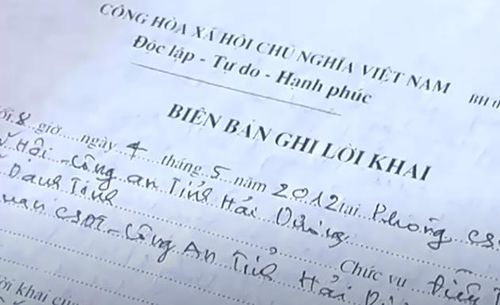 CỘNG HÒA XÃ HỘI CHỦ NGHĨA VIỆT NAM
Độc lập - Tự do - Hạnh phúc
BIÊN BẢN GHI LỜI KHAI
8 giờ ngày 4 tháng 5 năm 2012 tại Phòng
Hội - Công an Tỉnh Hải Dương
Danh Tính Chức vụ Điều
CSĐT - Công An Tỉnh Hải
khai